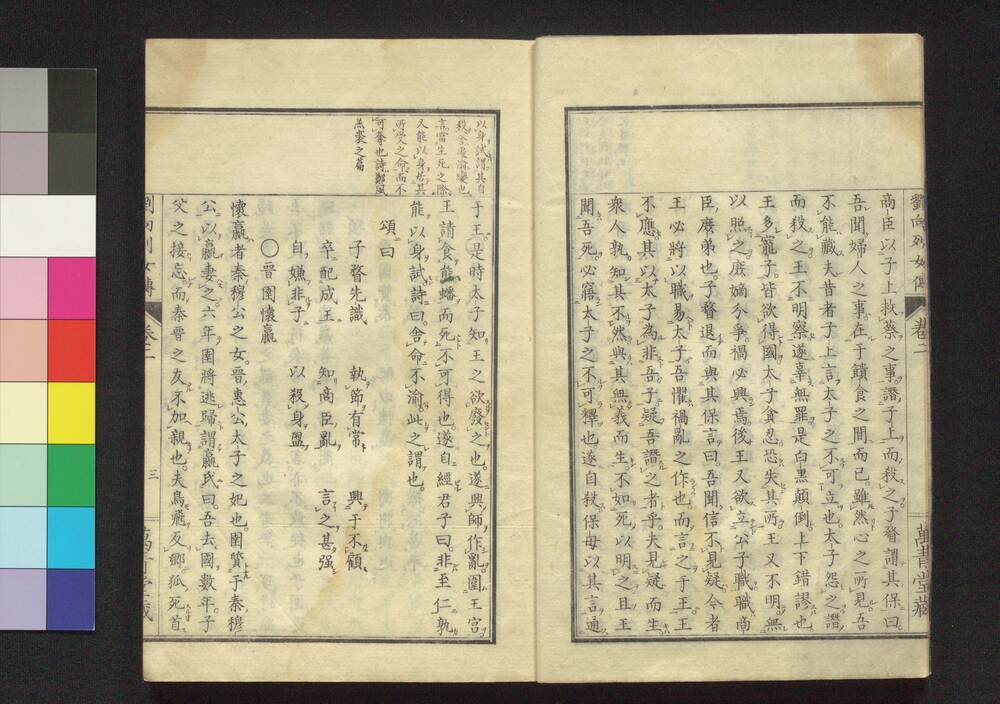 劉向列女傳 卷二 萬青堂藏
高臣以子上救蔡之事譖子上而殺之子瞀謂其保曰
吾聞婦人之事在于饋食之間而已雖然心之所見吾
不能藏夫昔者子上言太子之不可立也太子怨之譖
而殺之王不明察遂辜無罪是白黑顛倒上下錯謬也
王多寵子皆欲得國太子貪忍恐失其所王又不明無
以照之庶嫡分爭禍必興焉後王又欲立公子職職商
臣庶弟也子瞀退而與其保言曰吾聞信不見疑今者
王必將以職易太子吾懼禍亂之作也而言之于王王
不應其以太子為非吾子疑吾譖之者乎夫見疑而生
衆人孰知其不然與其無義而生不如死以明之且王
聞吾死必寤太子之不可釋也遂自殺保母以其言通
以身試謂其自
殺
言當生死之際
又能以身當其
所受之命而不
可奪也詩鄭風
羔裘之篇
于王是時太子知王之欲廢之也遂興師作亂圍王宮
王請食熊蟠而死不可得也遂自經君子曰非至仁孰
能以身試詩曰舍命不渝此之謂也
頌曰
子瞀先識 執節有常 興于不顧
卒配成王 知商臣亂 言之甚强
自嫌非子 以殺身盟
〇晉圉懷嬴
懷嬴者秦穆公之女晉惠公太子之妃也圉質于秦穆
公以嬴妻之六年圉將逃歸謂嬴氏曰吾去國數年子
父之接忘而秦晉之友不加親也夫鳥飛反鄉狐死首
劉向列女傳 卷二 三 萬青堂藏